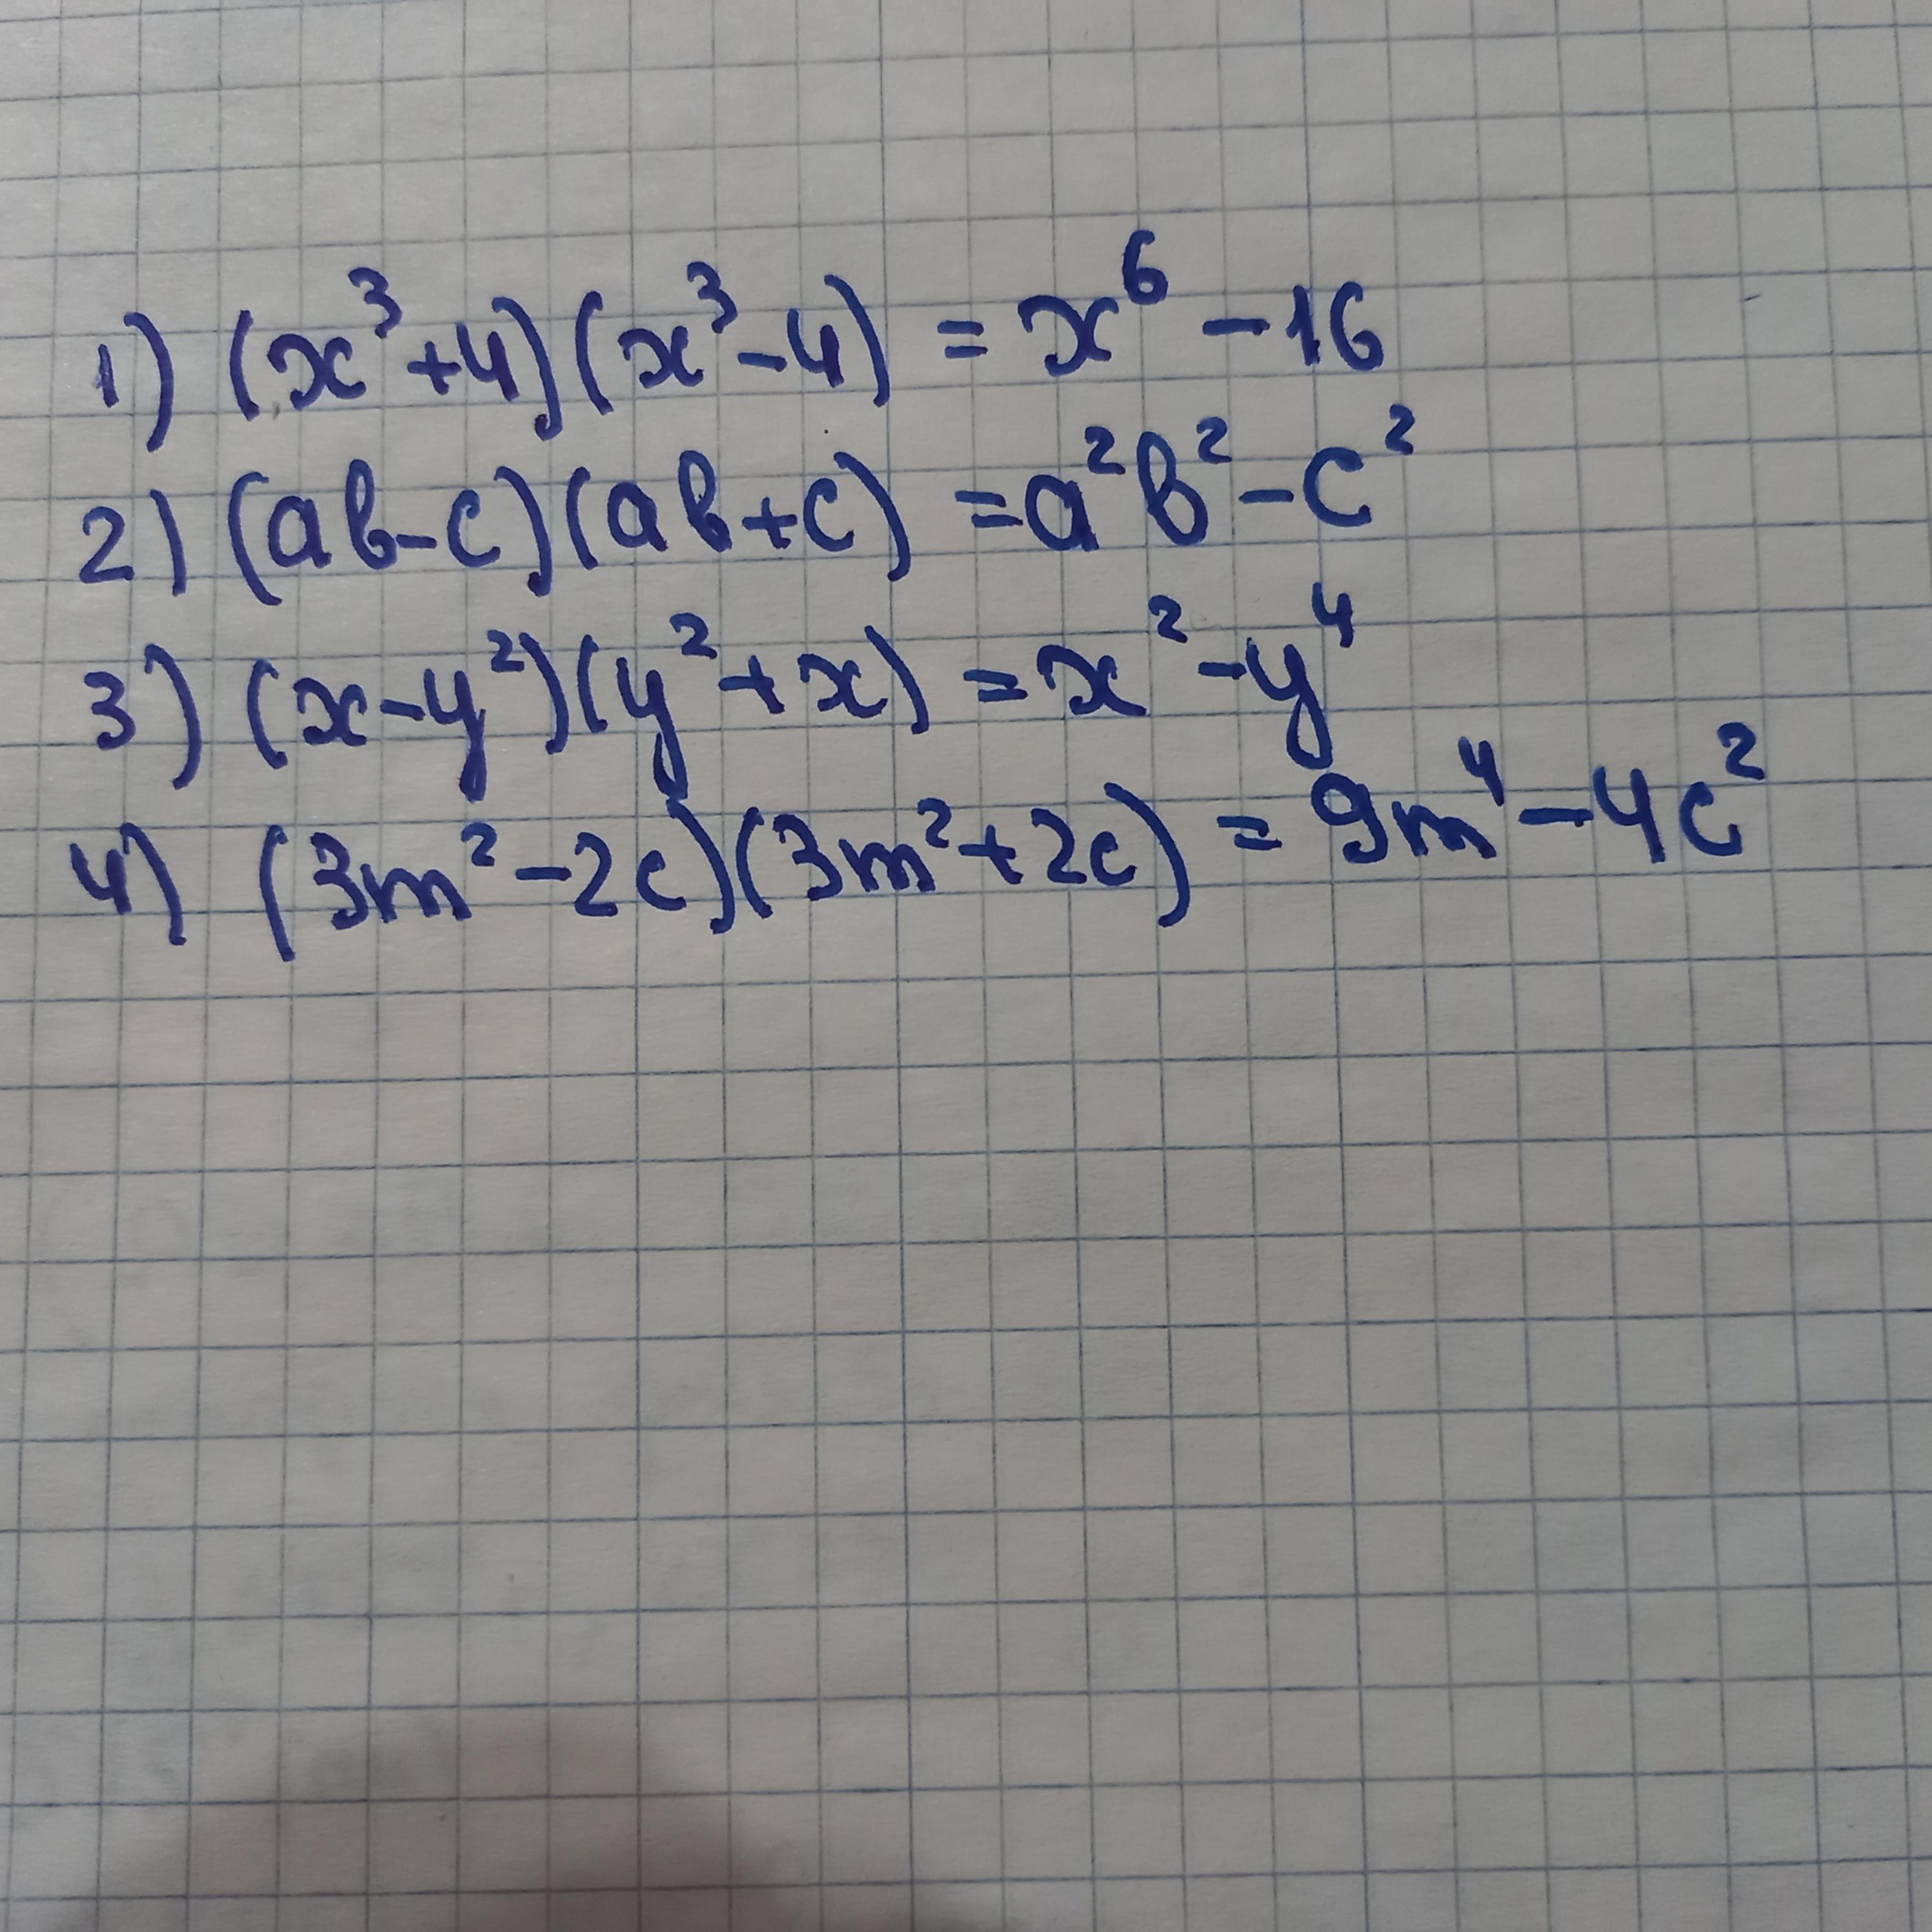 1) (x³+4)(x³-4) = x⁶ - 16
2) (ab-c)(ab+c) = a²b² - c²
3) (x-y²)(y²+x) = x² - y⁴
4) (3m²-2c)(3m²+2c) = 9m⁴ - 4c²